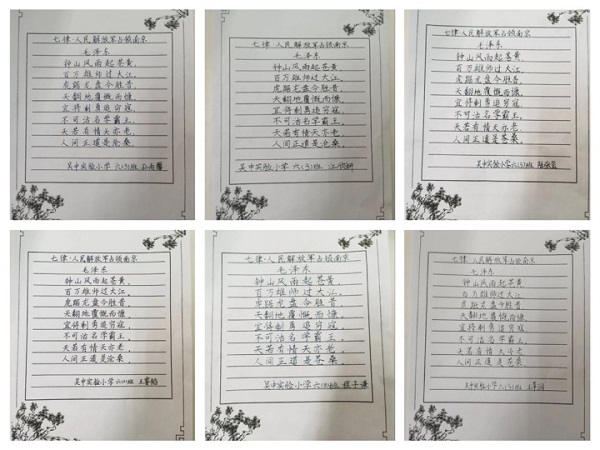 七律·人民解放军占领南京
毛泽东
钟山风雨起苍黄,
百万雄师过大江.
虎踞龙盘今胜昔,
天翻地覆慨而慷.
宜将剩勇追穷寇,
不可沽名学霸王.
天若有情天亦老,
人间正道是沧桑.
吴中实验小学 六(3)班
七律·人民解放军占领南京
毛泽东
钟山风雨起苍黄,
百万雄师过大江.
虎踞龙盘今胜昔,
天翻地覆慨而慷.
宜将剩勇追穷寇,
不可沽名学霸王.
天若有情天亦老,
人间正道是沧桑.
吴中实验小学 六(3)班 江欣妍
七律·人民解放军占领南京
毛泽东
钟山风雨起苍黄,
百万雄师过大江.
虎踞龙盘今胜昔,
天翻地覆慨而慷.
宜将剩勇追穷寇,
不可沽名学霸王,
天若有情天亦老,
人间正道是苍桑.
吴中实验小学六(3)班
七律·人民解放军占领南京
毛泽东
钟山风雨起苍黄,
百万雄师过大江.
虎踞龙盘今胜昔,
天翻地覆慨而慷.
宜将剩勇追穷寇,
不可沽名学霸王.
天若有情天亦老,
人间正道是沧桑.
吴中实验小学六(3)班
七律·人民解放军占领南京
毛泽东
钟山风雨起苍黄,
百万雄师过大江.
虎踞龙盘今胜昔,
天翻地覆慨而慷.
宜将剩勇追穷寇,
不可沽名学霸王.
天若有情天亦老,
人间正道是苍桑.
吴中实验小学六(3)班 程子谦
七律·人民解放军占领南京
毛泽东
钟山风雨起苍黄,
百万雄师过大江.
虎踞龙盘今胜昔,
天翻地覆慨而慷.
宜将剩勇追穷寇,
不可沽名学霸王.
天若有情天亦老
人间正道是苍桑.
吴中实验小学六(3)班